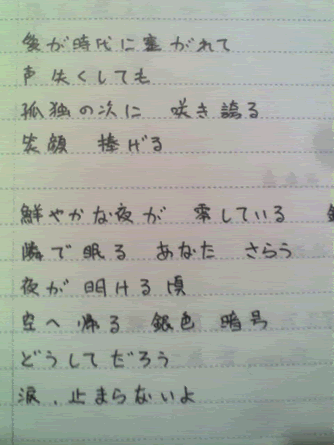 後が時代に塞がれて
声失くしても
孤独の次に 咲き誇る
笑顔 捧げる
鮮やかな夜が 零している
隣で眠る あなた さらう
夜が 明ける頃
空へ 帰る 銀色 暗号
どうしてだろう
涙、止まらないよ